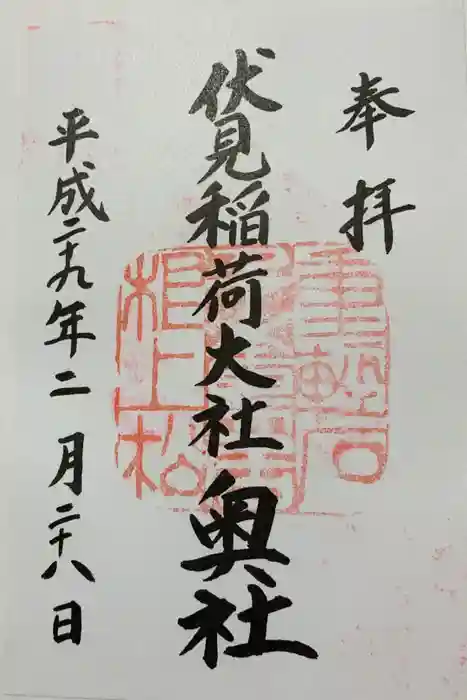 奉拝
伏見稲荷大社奥社
平成二十九年二月二十八日